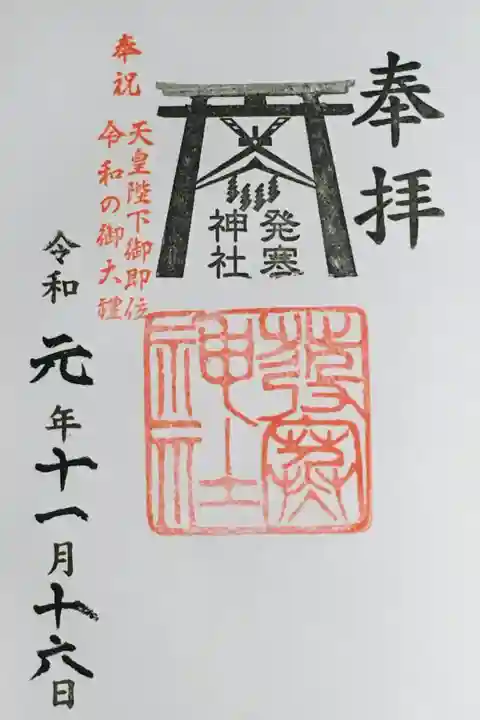 奉拝
発寒
神社
發寒
神社
奉祝
天皇陛下御即位
令和の御大禮
令和元年十一月十六日